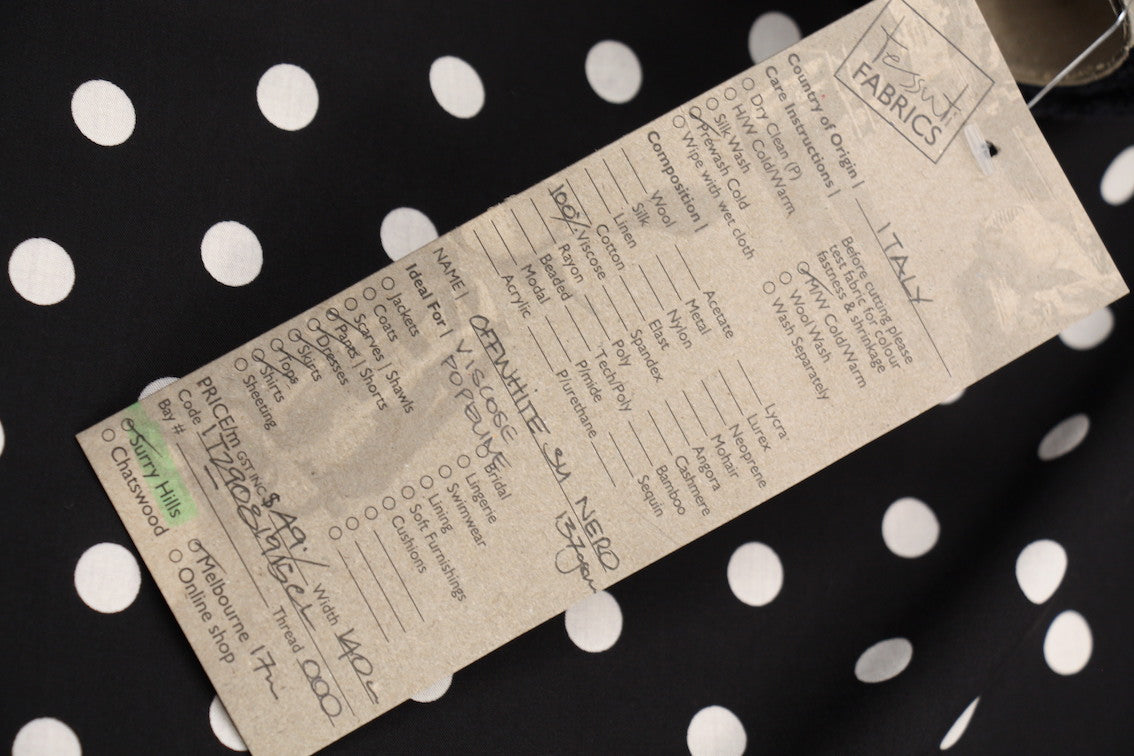 tessuti
FABRICS
Country of Origin | ITALY
Care Instructions |
Before cutting please
test fabric for colour
fastness & shrinkage
Dry Clean (P)
H/W Cold/Warm
Silk Wash
Prewash Cold
Wipe with wet cloth
M/W Cold/Warm
Wool Wash
Wash Separately
Composition |
Wool
Silk
Linen
Cotton
100% Viscose
Rayon
Beaded
Modal
Acrylic
Acetate
Metal
Nylon
Elast
Spandex
Poly
Tech/Poly
P/mide
P/urethane
Lycra
Lurex
Neoprene
Mohair
Angora
Cashmere
Bamboo
Sequin
NAME | OFFWHITE SU NERO
VISCOSE
POPELINE
Ideal For |
Jackets
Coats
Scarves | Shawls
Pants | Shorts
Dresses
Skirts
Tops
Shirts
Sheeting
Bridal
Lingerie
Swimwear
Lining
Soft Furnishings
Cushions
PRICE/m GST INC $49./ Width 140
Code
Thread 000
Bay #
Surry Hills
Chatswood
Melbourne 17
Online shop